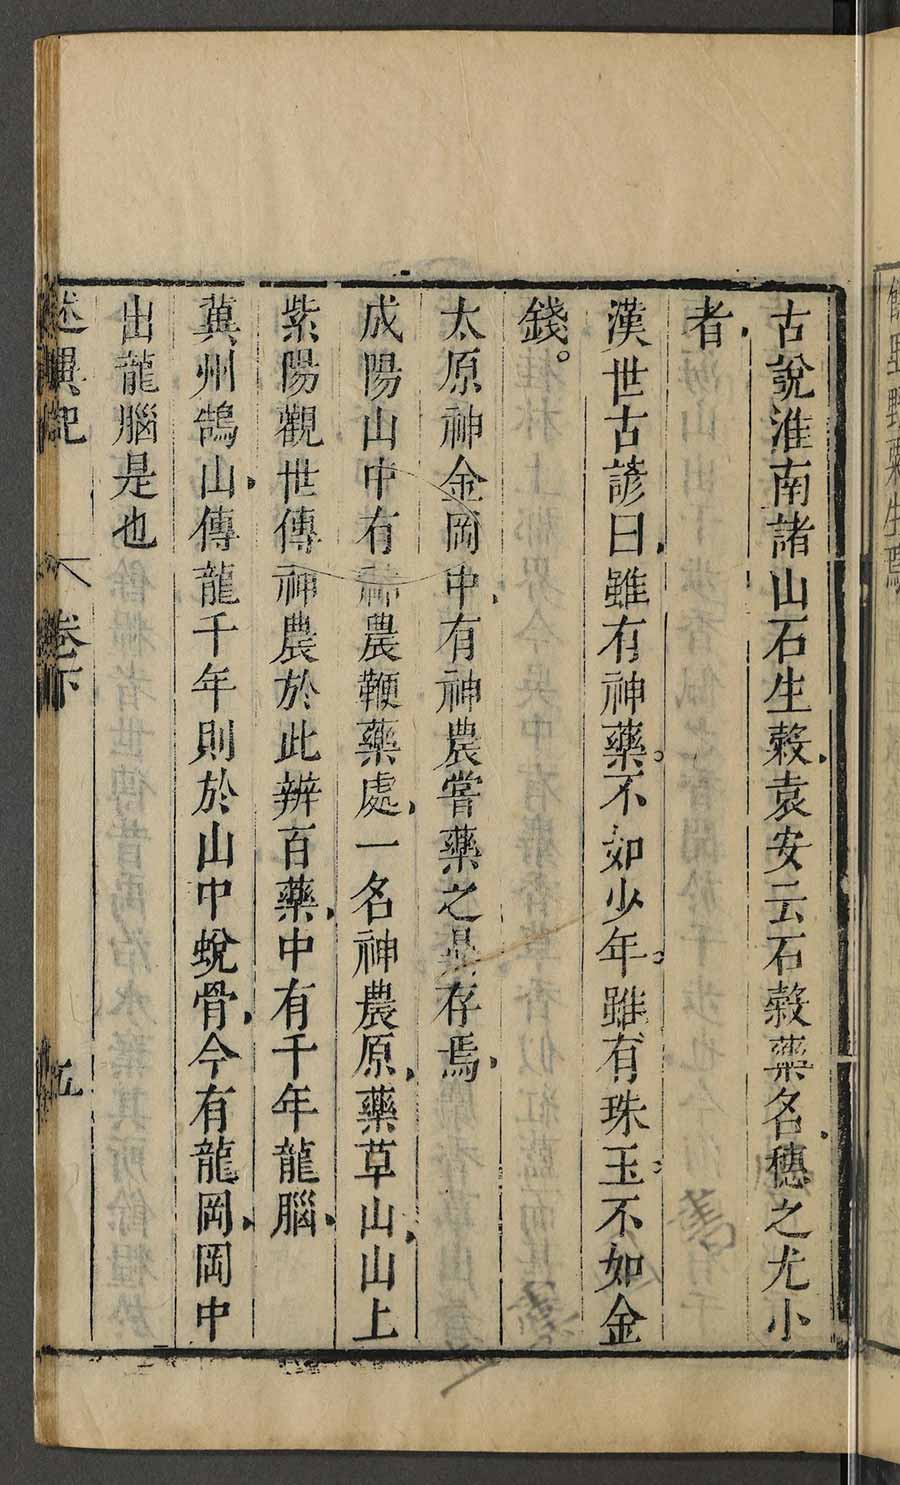 古說淮南諸山石生穀袁安云石穀藥名穗之尤小
者
漢世古諺曰雖有神藥不如少年雖有珠玉不如金
錢。
太原神金岡中有神農嘗藥之鼎存焉
成陽山中有神農鞭藥處一名神農原藥草山山上
紫陽觀世傳神農於此辨百藥中有千年龍腦
冀州鵠山傳龍千年則於山中蛻骨今有龍岡岡中
出龍腦是也
述異記 卷下 五